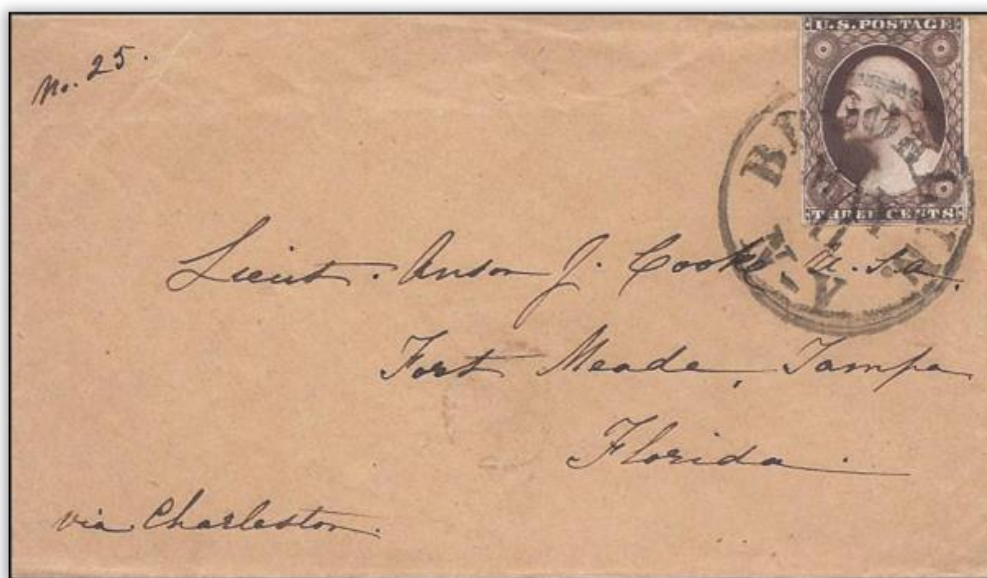 No. 25.
U.S. POSTAGE
THREE CENTS
N-Y
Lieut. Anson J. Cooke U.S.A.
Fort Meade, Tampa
Florida.
via Charleston.